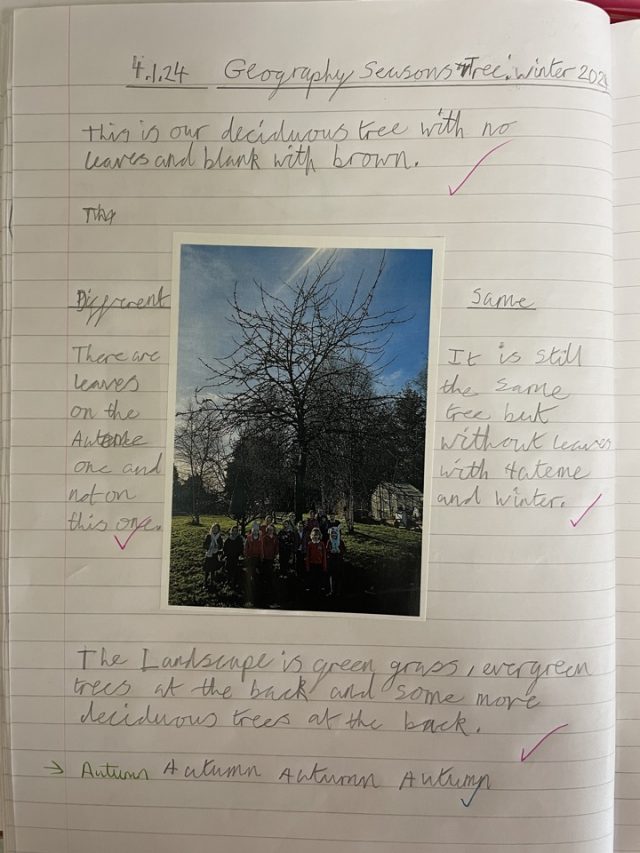 4.1.24 Geography Seasons Tree: winter 202
This is our deciduous tree with no
leaves and blank with brown.
The
Different
There are
leaves
on the
Auteme
one and
not on
this one.
Same
It is still
the same
tree but
without leaves
with Auteme
and winter.
The Landscape is green grass, evergreen
trees at the back and some more
deciduous trees at the back.
→ Autumn Autumn Autumn Autumn